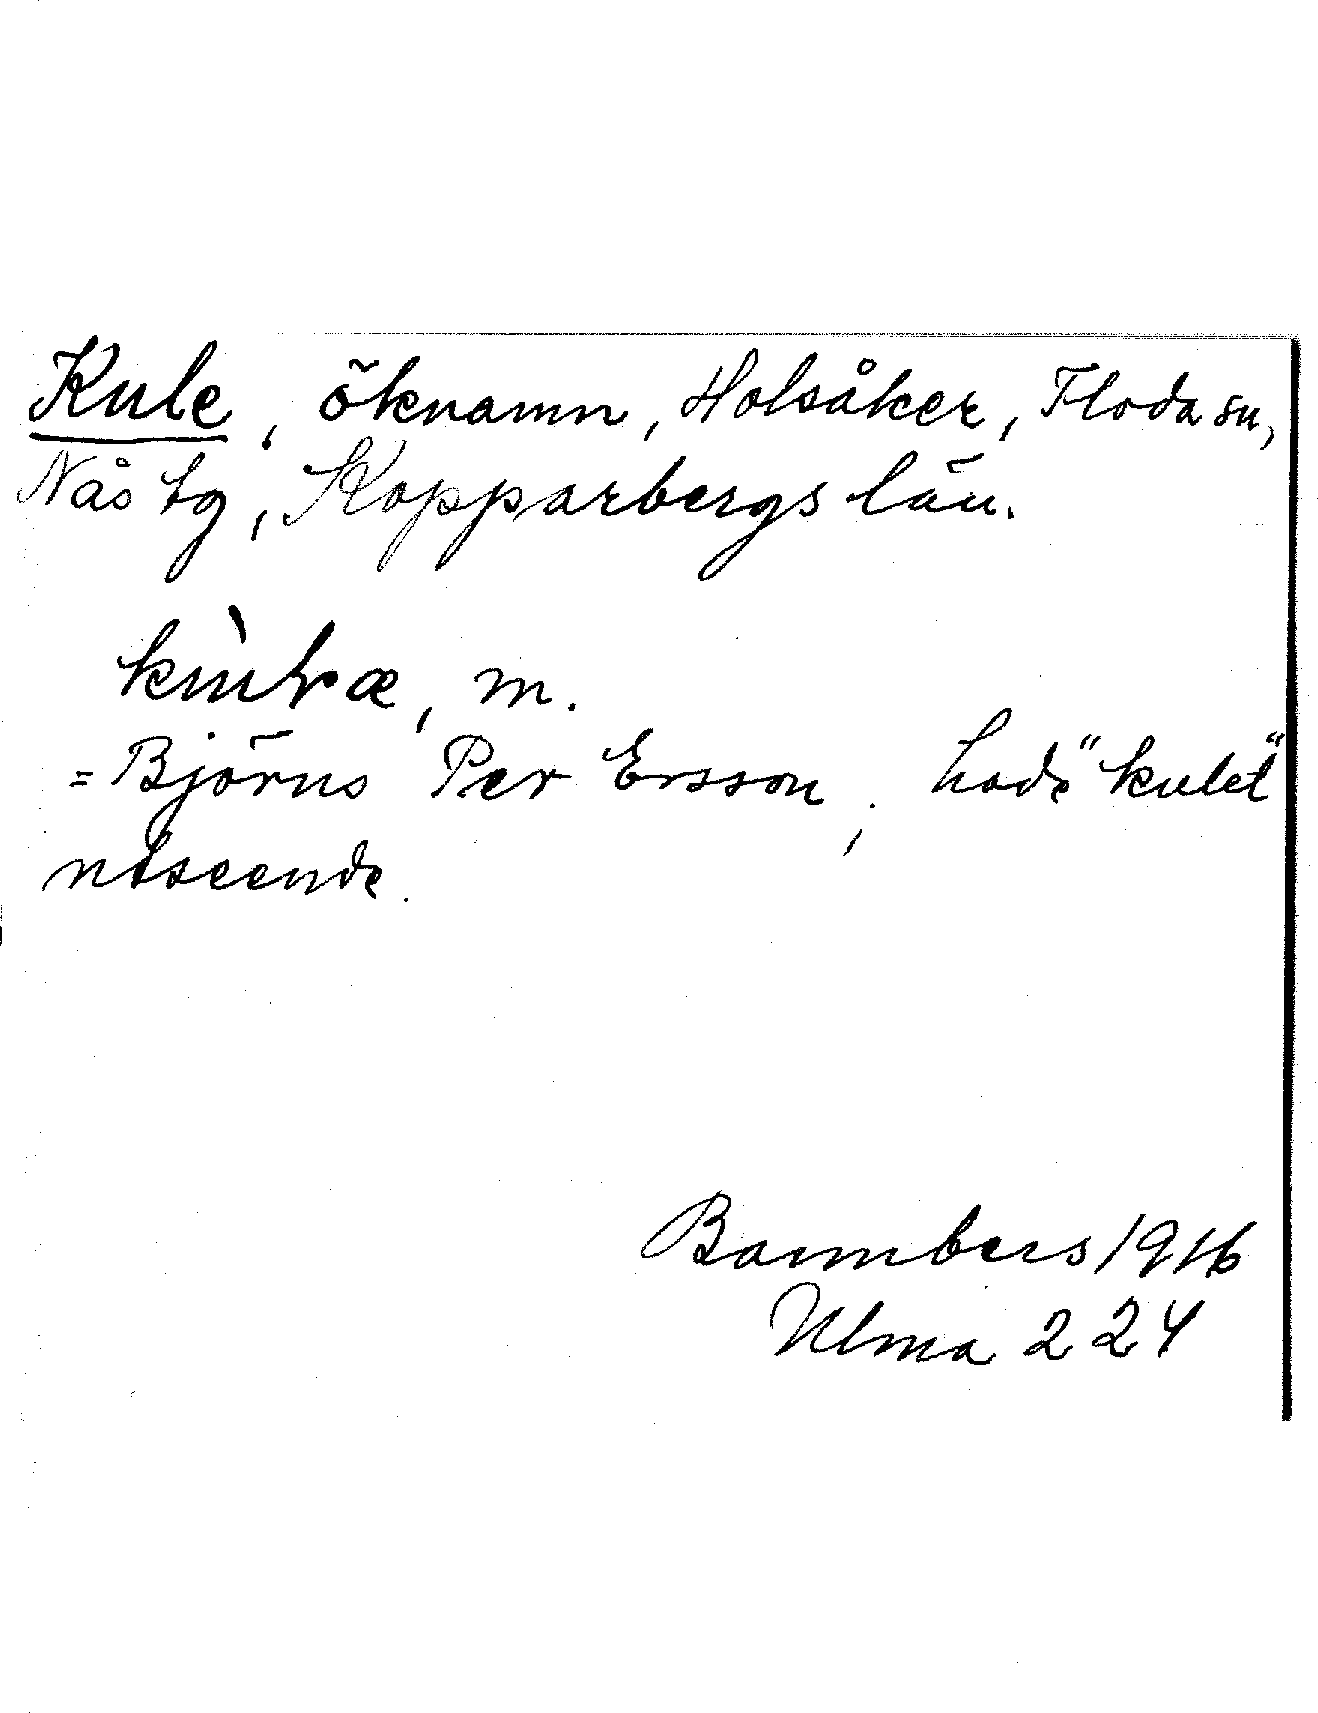 Kule, öknamn, Holsåker, Floda sn,
Nås tg, Kopparbergs län.
m.
= Björns Per Ersson; hade "kulet"
utseende.
1916
Ulma 224